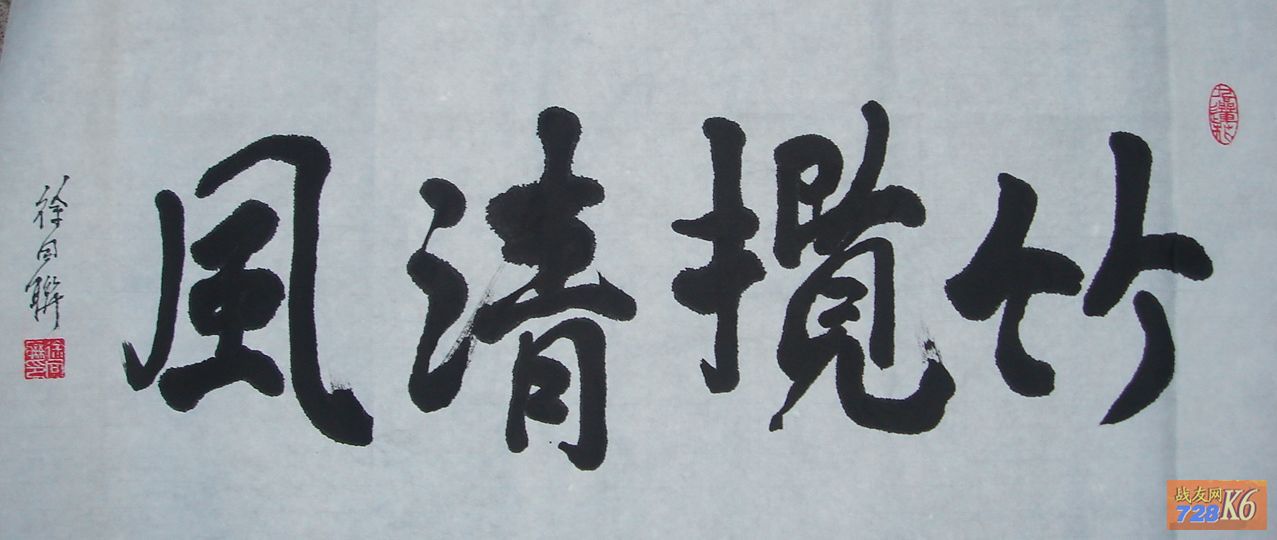 竹攬清風
徐同聯
战友网
728K6